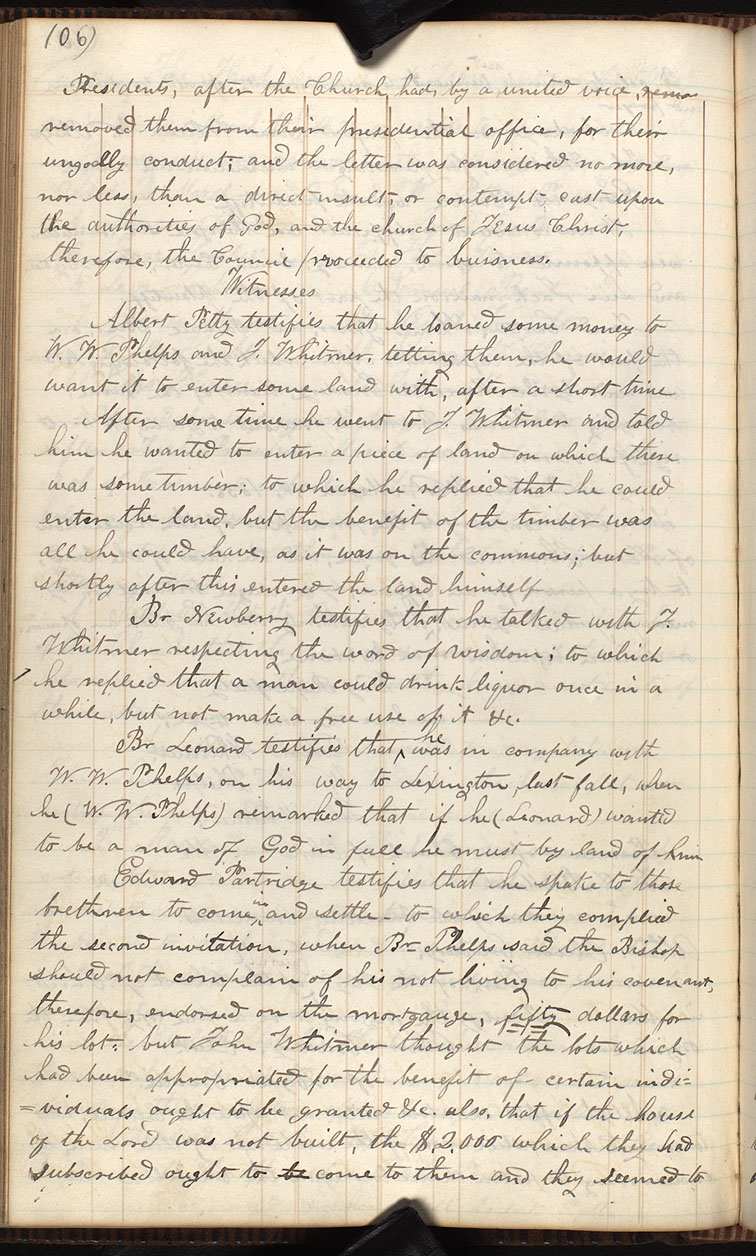 106)
Presidents, after the Church, had, by a united voice, remo
removed them from their presidential office, for their
ungodly conduct; and the letter was considered no more,
nor less, than a direct insult, or contempt, cast upon
the authorities of God, and the church of Jesus Christ;
therefore, the Council proceeded to buisness.
Witnesses
Albert Petty testifies that he loaned some money to
W. W. Phelps and J. Whitmer, telling them, he would
want it to enter some land with, after a short time
After some time he went to J. Whitmer and told
him he wanted to enter a piece of land on which there
was some timber; to which he replied that he could
enter the land, but the benefit of the timber was
all he could have, as it was on the commons; but
shortly after this entered the land himself
Br Newberry testifies that he talked with J.
Whitmer respecting the word of wisdom; to which
he replied that a man could drink liquor once in a
while, but not make a free use of it &c.
Br Leonard testifies that he was in company with
W. W. Phelps, on his way to Lexington, last fall, when
he (W. W. Phelps) remarked that if he (Leonard) wanted
to be a man of God in full he must by land of him
Edward Partridge testifies that he spake to those
brethren to come in and settle - to which they complied
the second invitation, when Br Phelps said the Bishop
should not complain of his not living to his covenant,
therefore, endorsed on the mortgauge, fifty dollars for
his lot; but John Whitmer thought the lots which
had been appropriated for the benefit of certain indi=
=viduals ought to be granted &c. also, that if the house
of the Lord was not built, the $2.000 which they had
subscribed ought to be come to them and they seemed to